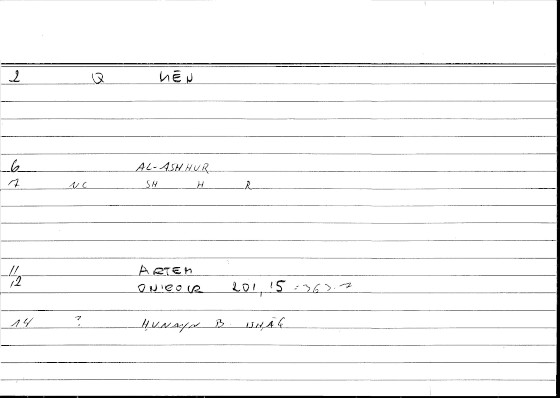 2 Q NĒN
6 AL-ASHHUR
7 NC SH H R
11 ARTEM
12 ONIROCR 201,15
14 ? HUNAYN B. ISHĀQ